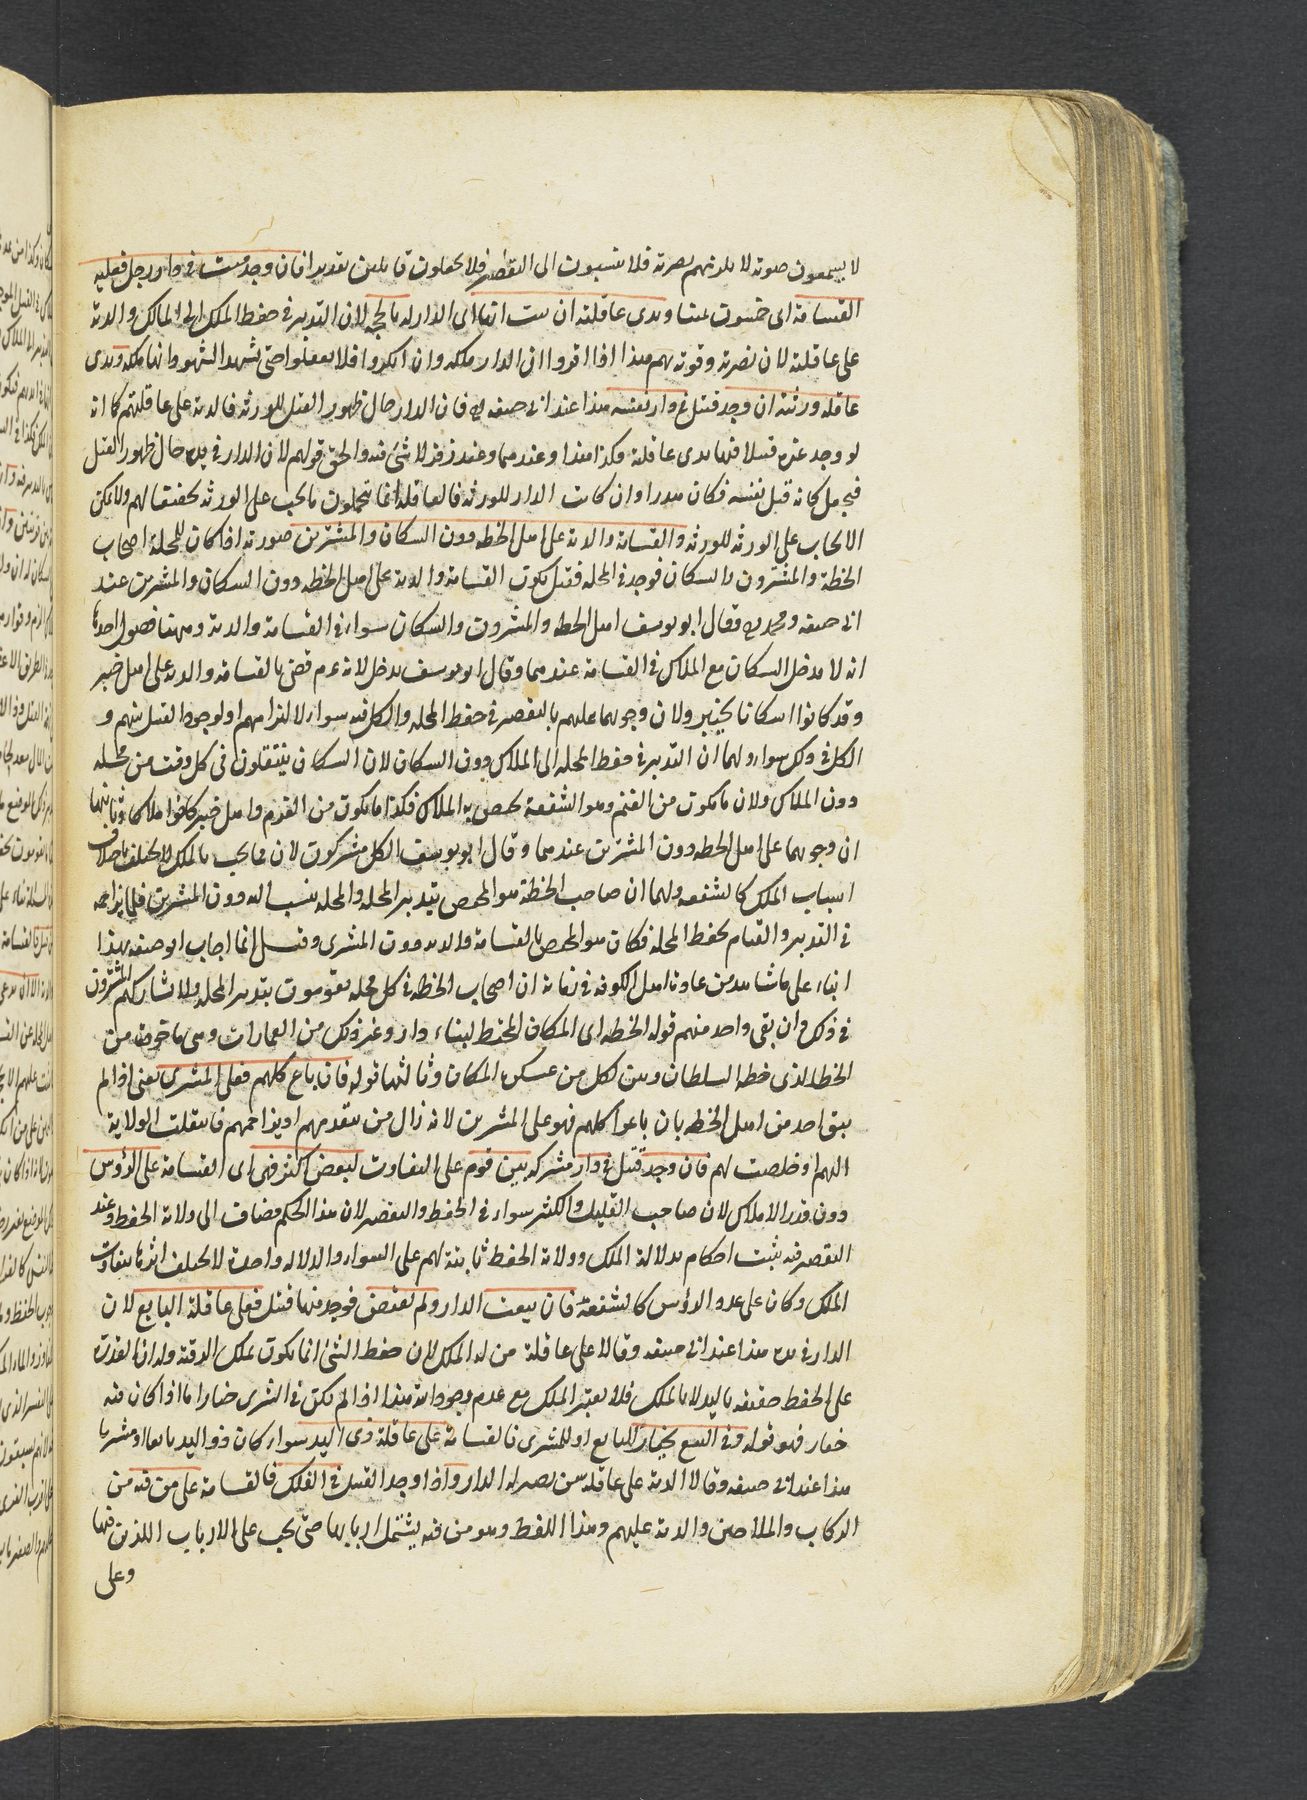 لا يسمعون صوته لا يلزمهم نصرته فلا ينسبون الى التقصير فلا يجعلون قاتلين تقديرا فان وجد ميت في دار رجل فعليه
القسامة اى خمسون يمينا ويدى عاقلته ان ثبت انها اى الدار له بالحجة لان التدبير في حفظ الملك الى المالك والدية
على عاقلته لان نصرته وقوته بهم هذا اذا اقروا ان الدار ملكه وان انكروا فلا يعقلوا حتى يشهد الشهود انها ملكه ويدى
عاقلة ورثته ان وجد قتيل في دار نفسه هذا عند ابى حنيفه فان الدار حال ظهور القتل للورثة فالدية على عاقلتهم كما انه
لو وجد غيره قتيلا فيها يدى عاقلته وكذا هذا وعندهما وعند زفر لا شئ فيه والحق قولهم لان الدار في يده حال ظهور القتل
فيجعل كانه قتل نفسه فكان هدرا وان كانت الدار للورثة فالعاقلة انما يتحملون ما يجب على الورثة تخفيفا لهم ولا يمكن
الايجاب على الورثة للورثة والقسامة والدية على اهل الخطة دون السكان والمشترين صورته اذا كان للمحلة اصحاب
الخطة والمشترون والسكان فوجد في المحلة قتيل يكون القسامة والدية على اهل الخطة دون السكان والمشترين عند
ابى حنيفة ومحمد وقال ابو يوسف اهل الخطة والمشترون والسكان سواء في القسامة والدية وههنا فصول احدها
انه لا يدخل السكان مع الملاك في القسامة عندهما وقال ابو يوسف يدخل لانه عم قضى بالقسامة والدية على اهل خيبر
وقد كانوا سكانا بخيبر ولان وجوبهما عليهم بالتقصير في حفظ المحلة والكل فيه سواء لالتزامهم او لوجود القتيل بينهم و
الكل في ذلك سواء ولهما ان التدبير في حفظ المحلة الى الملاك دون السكان لان السكان ينتقلون في كل وقت من محلة
دون الملاك ولان ما يكون من الغنم وهو الشفعة يختص به الملاك فكذا ما يكون من الغرم واهل خيبر كانوا ملاكا وثانيها
ان وجوبهما على اهل الخطة دون المشترين عندهما وقال ابو يوسف الكل مشتركون لان ما يجب بالملك لا يختلف باختلاف
اسباب الملك كالشفعة ولهما ان صاحب الخطة هو المختص بتدبير المحلة والمحلة ينسب اليه دون المشترين فلما يزاحمه
في التدبير والقيام بحفظ المحلة فكان هو المختص بالقسامة والدية دون المشترى وقيل انما اجاب ابو حنيفه بهذا
بناء على ما شاهد من عادة اهل الكوفة في زمانه ان اصحاب الخطة في كل محلة يقومون بتدبير المحلة ولا يشاركهم المشترون
في ذلك وان بقى واحد منهم قوله الخطة اى المكان المختط لبناء دار وغير ذلك من العمارات وهى ماخوذة من
الخط الذى خطه السلطان وبين لكل من عسكره المكان وثالثها قوله فان باع كلهم فعلى المشترى يعنى اذا لم
يبق احد من اهل الخطة بان باعوا كلهم فهو على المشترين لانه زال من يتقدمهم او يزاحمهم فانتقلت الولاية
اليهم او خلصت لهم فان وجد قتيل في دار مشتركة بين قوم على التفاوت لبعض اكثر فهى اى القسامة على الرؤس
دون قدر الاملاك لان صاحب القليل والكثير سواء في الحفظ والتقصير لان هذا الحكم مضاف الى ولاية الحفظ وعند
التقصير فيه يثبت احكام بدلالة الملك وولاية الحفظ ثابتة لهم على السواء والدلالة واحدة لا يختلف اثرها بتفاوت
الملك وكان على عدد الرؤس كالشفعة فان بيعت الدار ولم يقبض فوجد فيها قتيل فعلى عاقلة البايع لان
الدار في يده هذا عند ابى حنيفه وقالا على عاقلة من له الملك لان حفظ الشئ انما يكون بملك الرقبة وله ان القدرة
على الحفظ حقيقة باليد لا بالملك فلا يعتبر الملك مع عدم وجود اليد هذا اذا لم يكن في الشرى خيار اما اذا كان فيه
خيار فهو قوله وفى البيع بخيار للبايع او للمشترى فالقسامة على عاقلة ذى اليد سواء كان ذو اليد بايعا او مشتريا
هذا عند ابى حنيفه وقالا الدية على عاقلة من يصير له الدار واذا وجد القتيل في الفلك فالقسامة على من فيه من
الركاب والملاحين والدية عليهم وهذا اللفظ وهو من فيه يشتمل اربابها حتى يجب على الارباب الذين فيها
وعلى